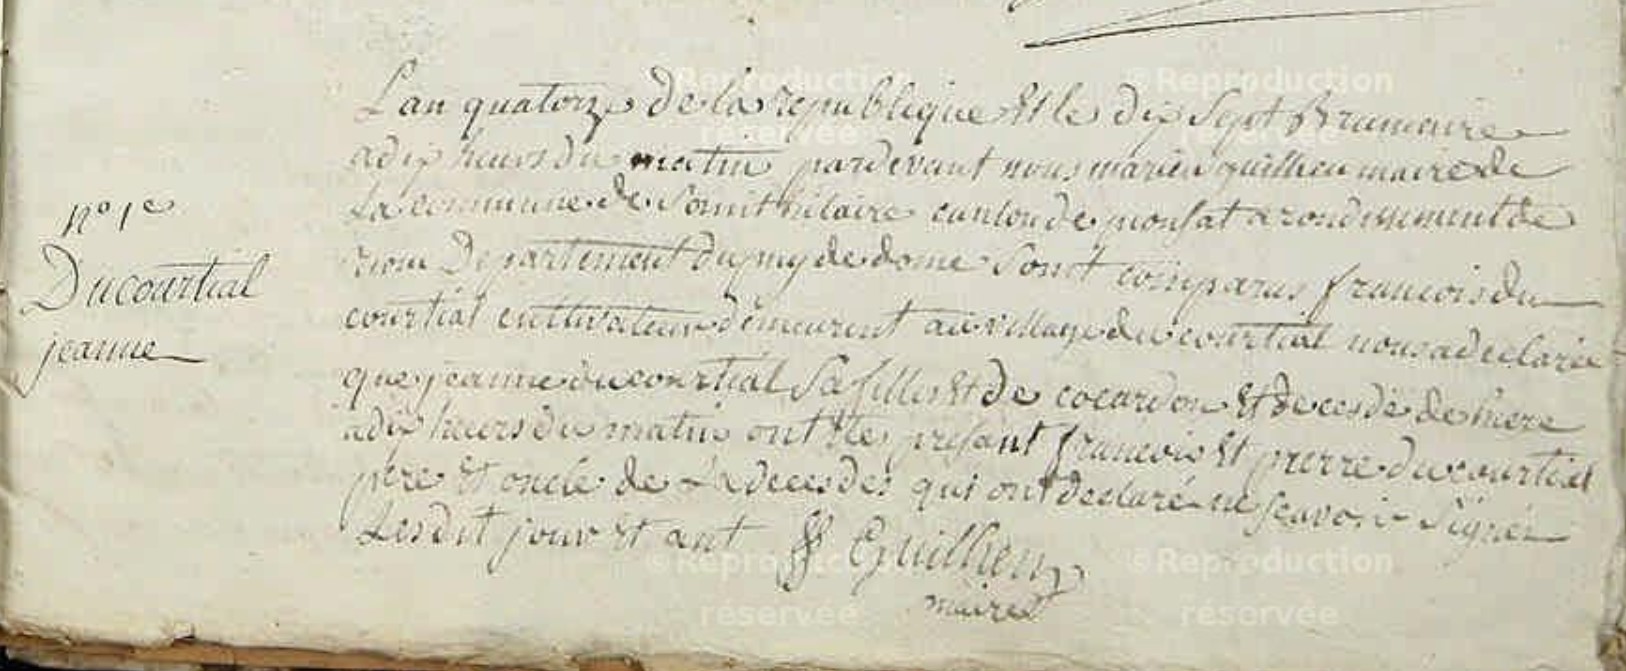 n° 1e
Ducourtial
jeanne
L'an quatorze de la republique Et le dix Sept Brumaire
a dix heurs du matin pardevant nous marien guilhien maire de
La commune de Sainit hilaire canton de monsat arondissement de
riom Departement du puy de dome Sont comparus francois du
courtial cultivateur demeurent au village du courtial nous a declarée
que jeanne ducourtial Sa fille Et de cocardon Et decesdé de hiere
a dix heurs du matin ont été présant francois Et pierre ducourtial
pere Et oncle de La decesdes qui ont declaré ne scavoir Signer
Lesdit jour Et ant Guilhien
maire
©Reproduction
réservée
©Reproduction
réservée
©Reproduction
réservée
©Reproduction
réservée